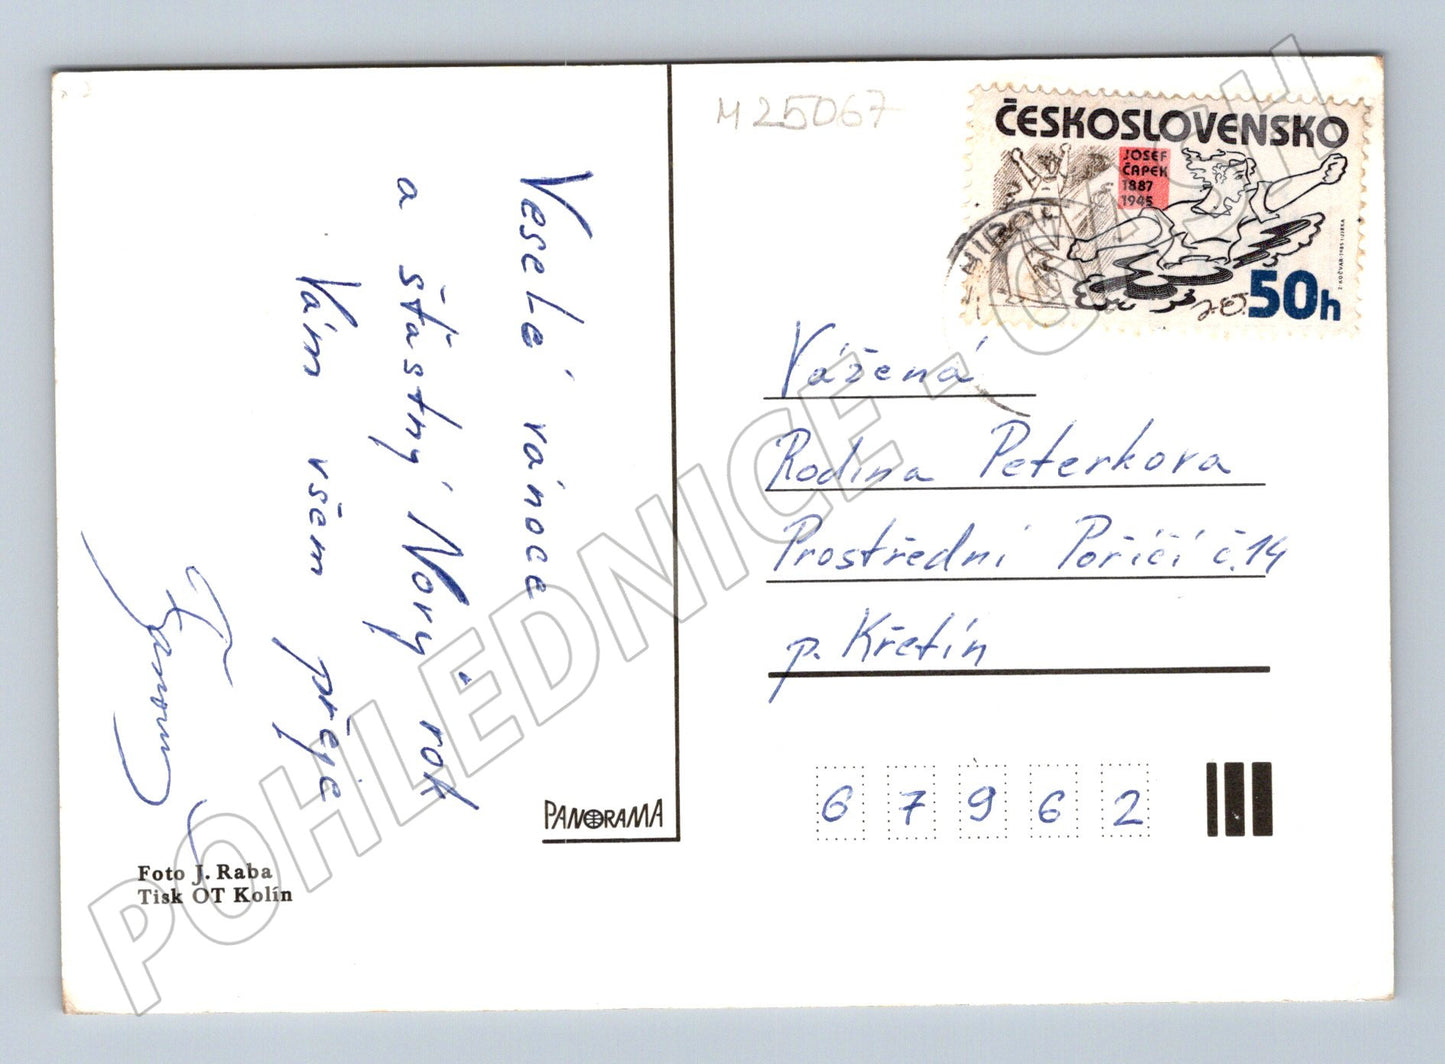 M25067
ČESKOSLOVENSKO
JOSEF
ČAPEK
1887
1945
50h
Veselé vánoce
a šťastný Nový rok
Vám všem přeje
Vážená
Rodina Peterkova
Prostřední Poříčí č.14
p. Křetín
67962
PANORAMA
Foto J. Raba
Tisk OT Kolín
POHLEDNICE - CASH